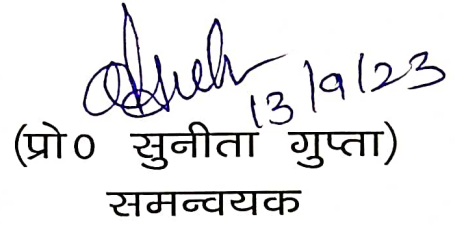 13/9/23
(प्रो० सुनीता गुप्ता)
समन्वयक